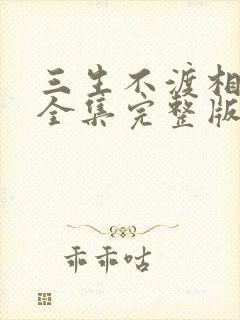 三生不渡相
全集完整版
乖乖咕